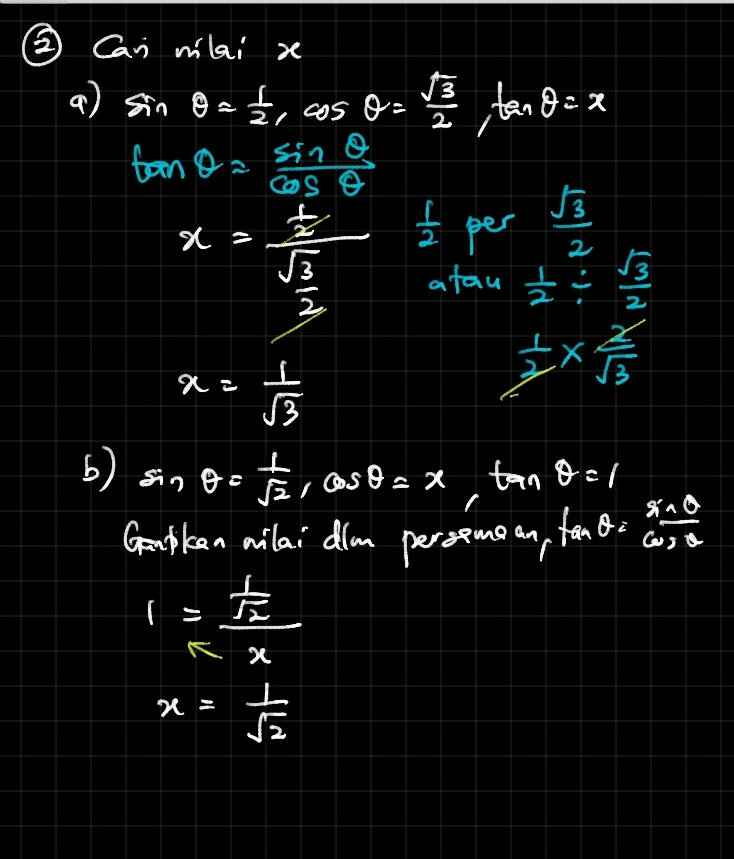 ② Cari nilai x
a) sin θ = 1/2, cos θ = √3/2, tan θ = x
tan θ = sin θ / cos θ
x = (1/2) / (√3/2)
1/2 per √3/2
atau 1/2 ÷ √3/2
1/2 × 2/√3
x = 1/√3
b) sin θ = 1/√2, cos θ = x, tan θ = 1
Gantikan nilai dlm persamaan, tan θ = sin θ / cos θ
1 = (1/√2) / x
x = 1/√2